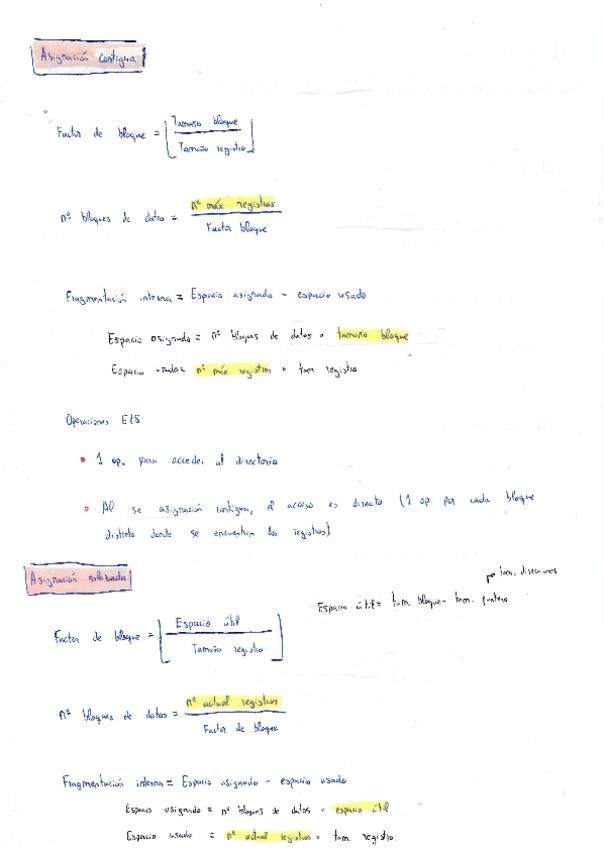 Asignación contigua
Factor de bloque = ⌊ Tamaño bloque / Tamaño registro ⌋
nº bloques de datos = nº máx registros / Factor bloque
Fragmentación interna = Espacio asignado - espacio usado
Espacio asignado = nº bloques de datos · tamaño bloque
Espacio usado = nº máx registros · tam registro
Operaciones E/S
• 1 op. para acceder al directorio
• Al se asignación contigua, el acceso es directo (1 op. por cada bloque
distinto donde se encuentran los registros)
Asignación enlazada
tam. direcciones
Espacio útil = tam bloque - tam. puntero
Factor de bloque = ⌊ Espacio útil / Tamaño registro ⌋
nº bloques de datos = nº actual registros / Factor de bloque
Fragmentación interna = Espacio asignado - espacio usado
Espacio asignado = nº bloques de datos · espacio útil
Espacio usado = nº actual registros · tam registro